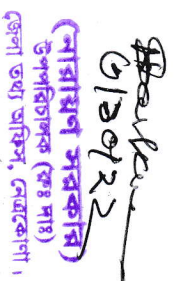 (নারায়ণ সরকার)
উপপরিচালক (চঃ দাঃ)
জেলা তথ্য অফিস, নেত্রকোণা।